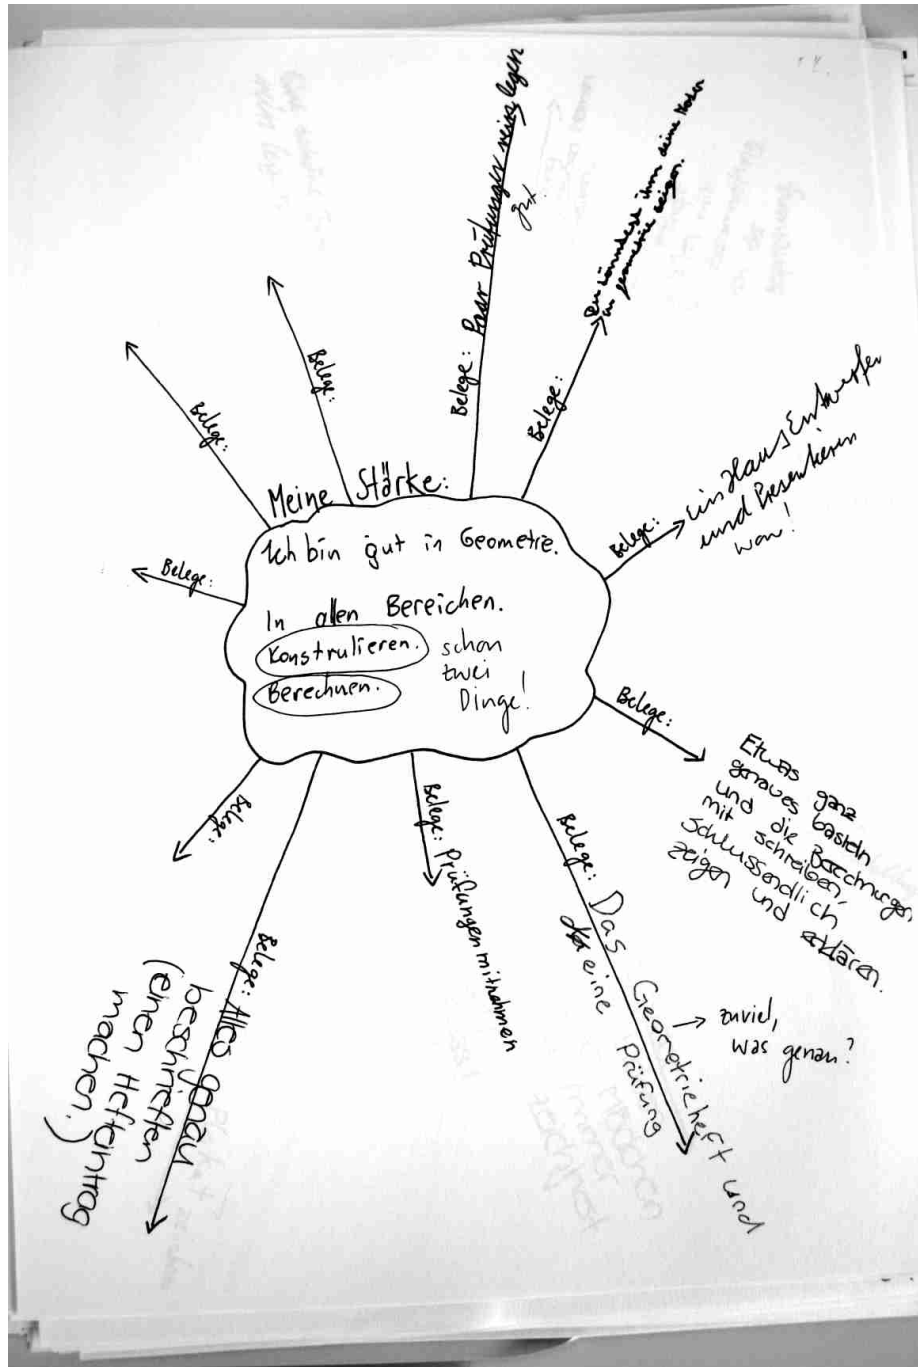 Meine Stärke:
Ich bin gut in Geometrie.
In allen Bereichen.
Konstrulieren.
Berechnen.
schon
zwei
Dinge!
Belege:
Belege:
Belege:
Belege: Paar Prüfungen reinlegen
gut
Belege:
Du könntest ihm deine
in geometrie zeigen.
Belege: ein Haus Entwerfen
und Presentieren
Belege:
Etwas ganz
genaues basteln
und die Berechnungen
mit schreiben,
schlussendlich
zeigen und erklären.
Belege: Das Geometrieheft und
eine Prüfung
→ zuviel,
was genau?
Belege: Prüfungen mitnehmen
Belege: Alles genau
beschrieften
(einen Hefteintrag
machen.)
Belege: